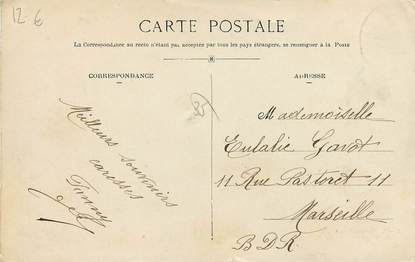 12 €
CARTE POSTALE
La Correspondance au recto n'étant pas acceptée par tous les pays étrangers, se renseigner à la Poste
CORRESPONDANCE
ADRESSE
35
Meilleurs souvenirs
caresses
Mademoiselle
Eulalie Gavot
11 Rue Pastoret 11
Marseille
B D R